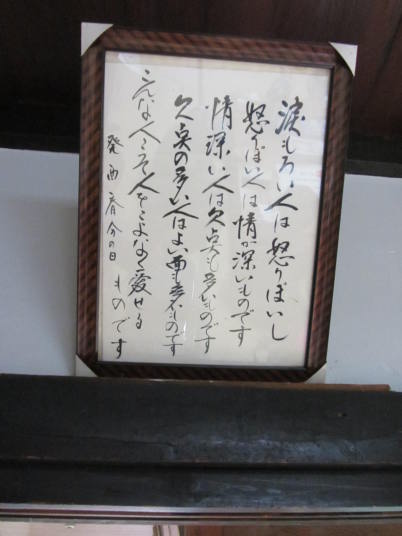 涙もろい人は怒りぽいし
怒りぽい人は情が深いものです
情深い人は欠点も多いものです
欠点の多い人はよい面も多いものです
こんな人こそ人をこよなく愛せる
ものです
癸酉春分の日